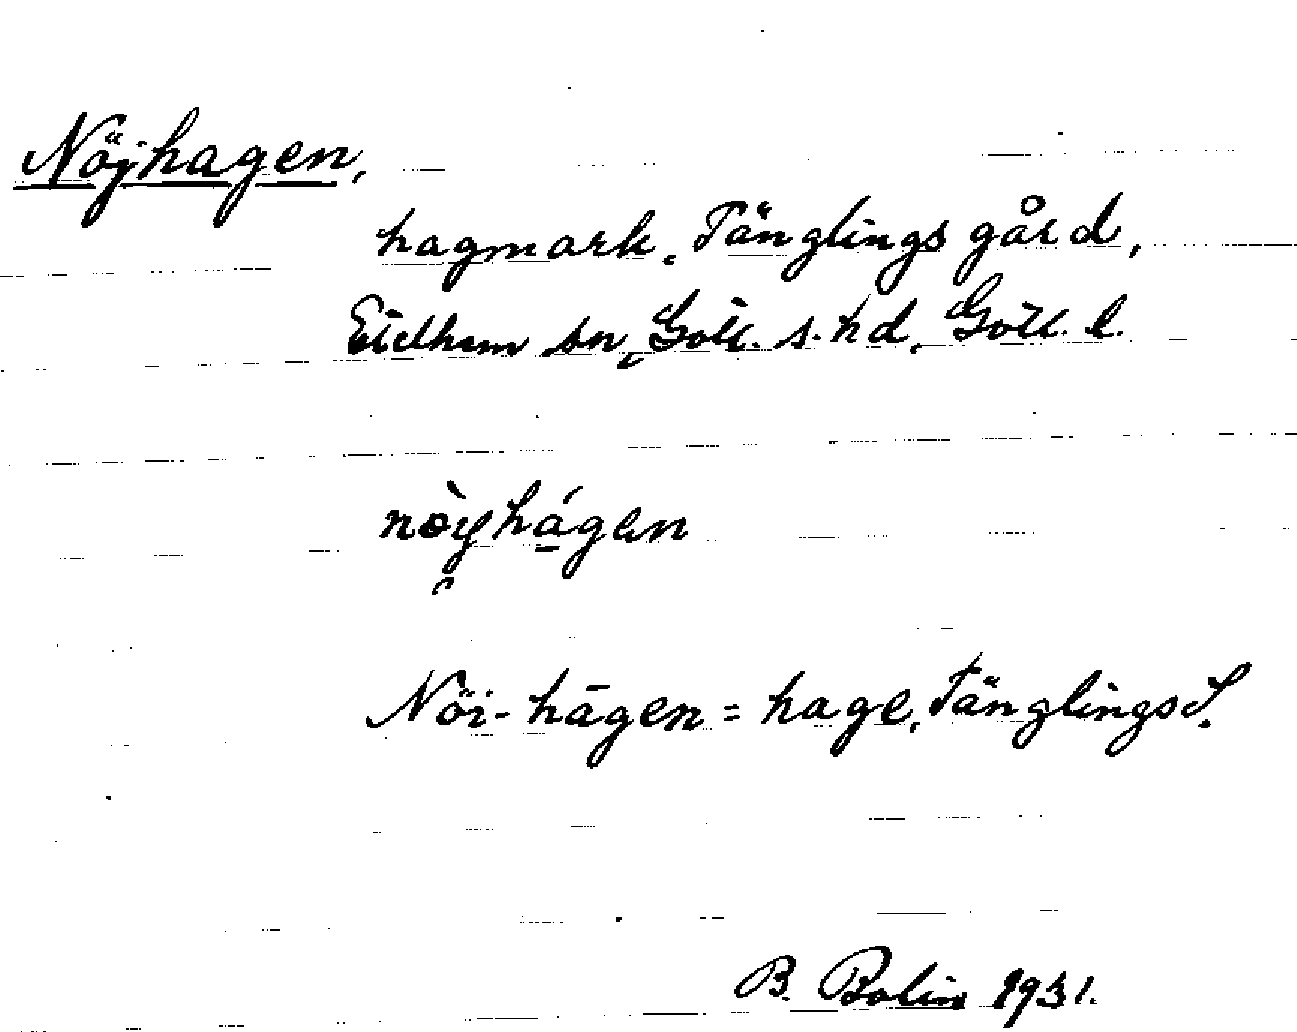 Nöjhagen,
hagmark, Tänglings gård,
Etelhem sn, Gotl. s. hd, Gotl. l.
nòy̨hágen
Nöi-hāgen = hage, Tänglings S.
B. Bolin 1931.